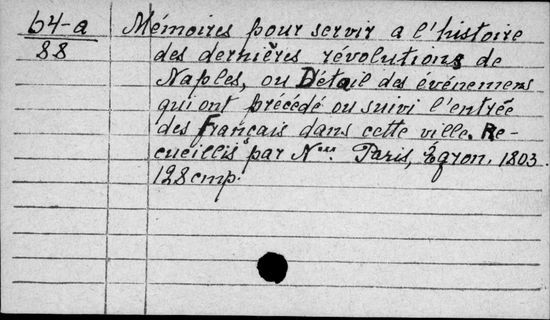 64-a
88
Mémoires pour servir a l'histoire
des dernières révolutions de
Naples, ou Détail des événemens
qui ont précédé ou suivi l'entrée
des Français dans cette ville. Re-
cueillis par N*** Paris, Egron. 1803.
128 cmp.